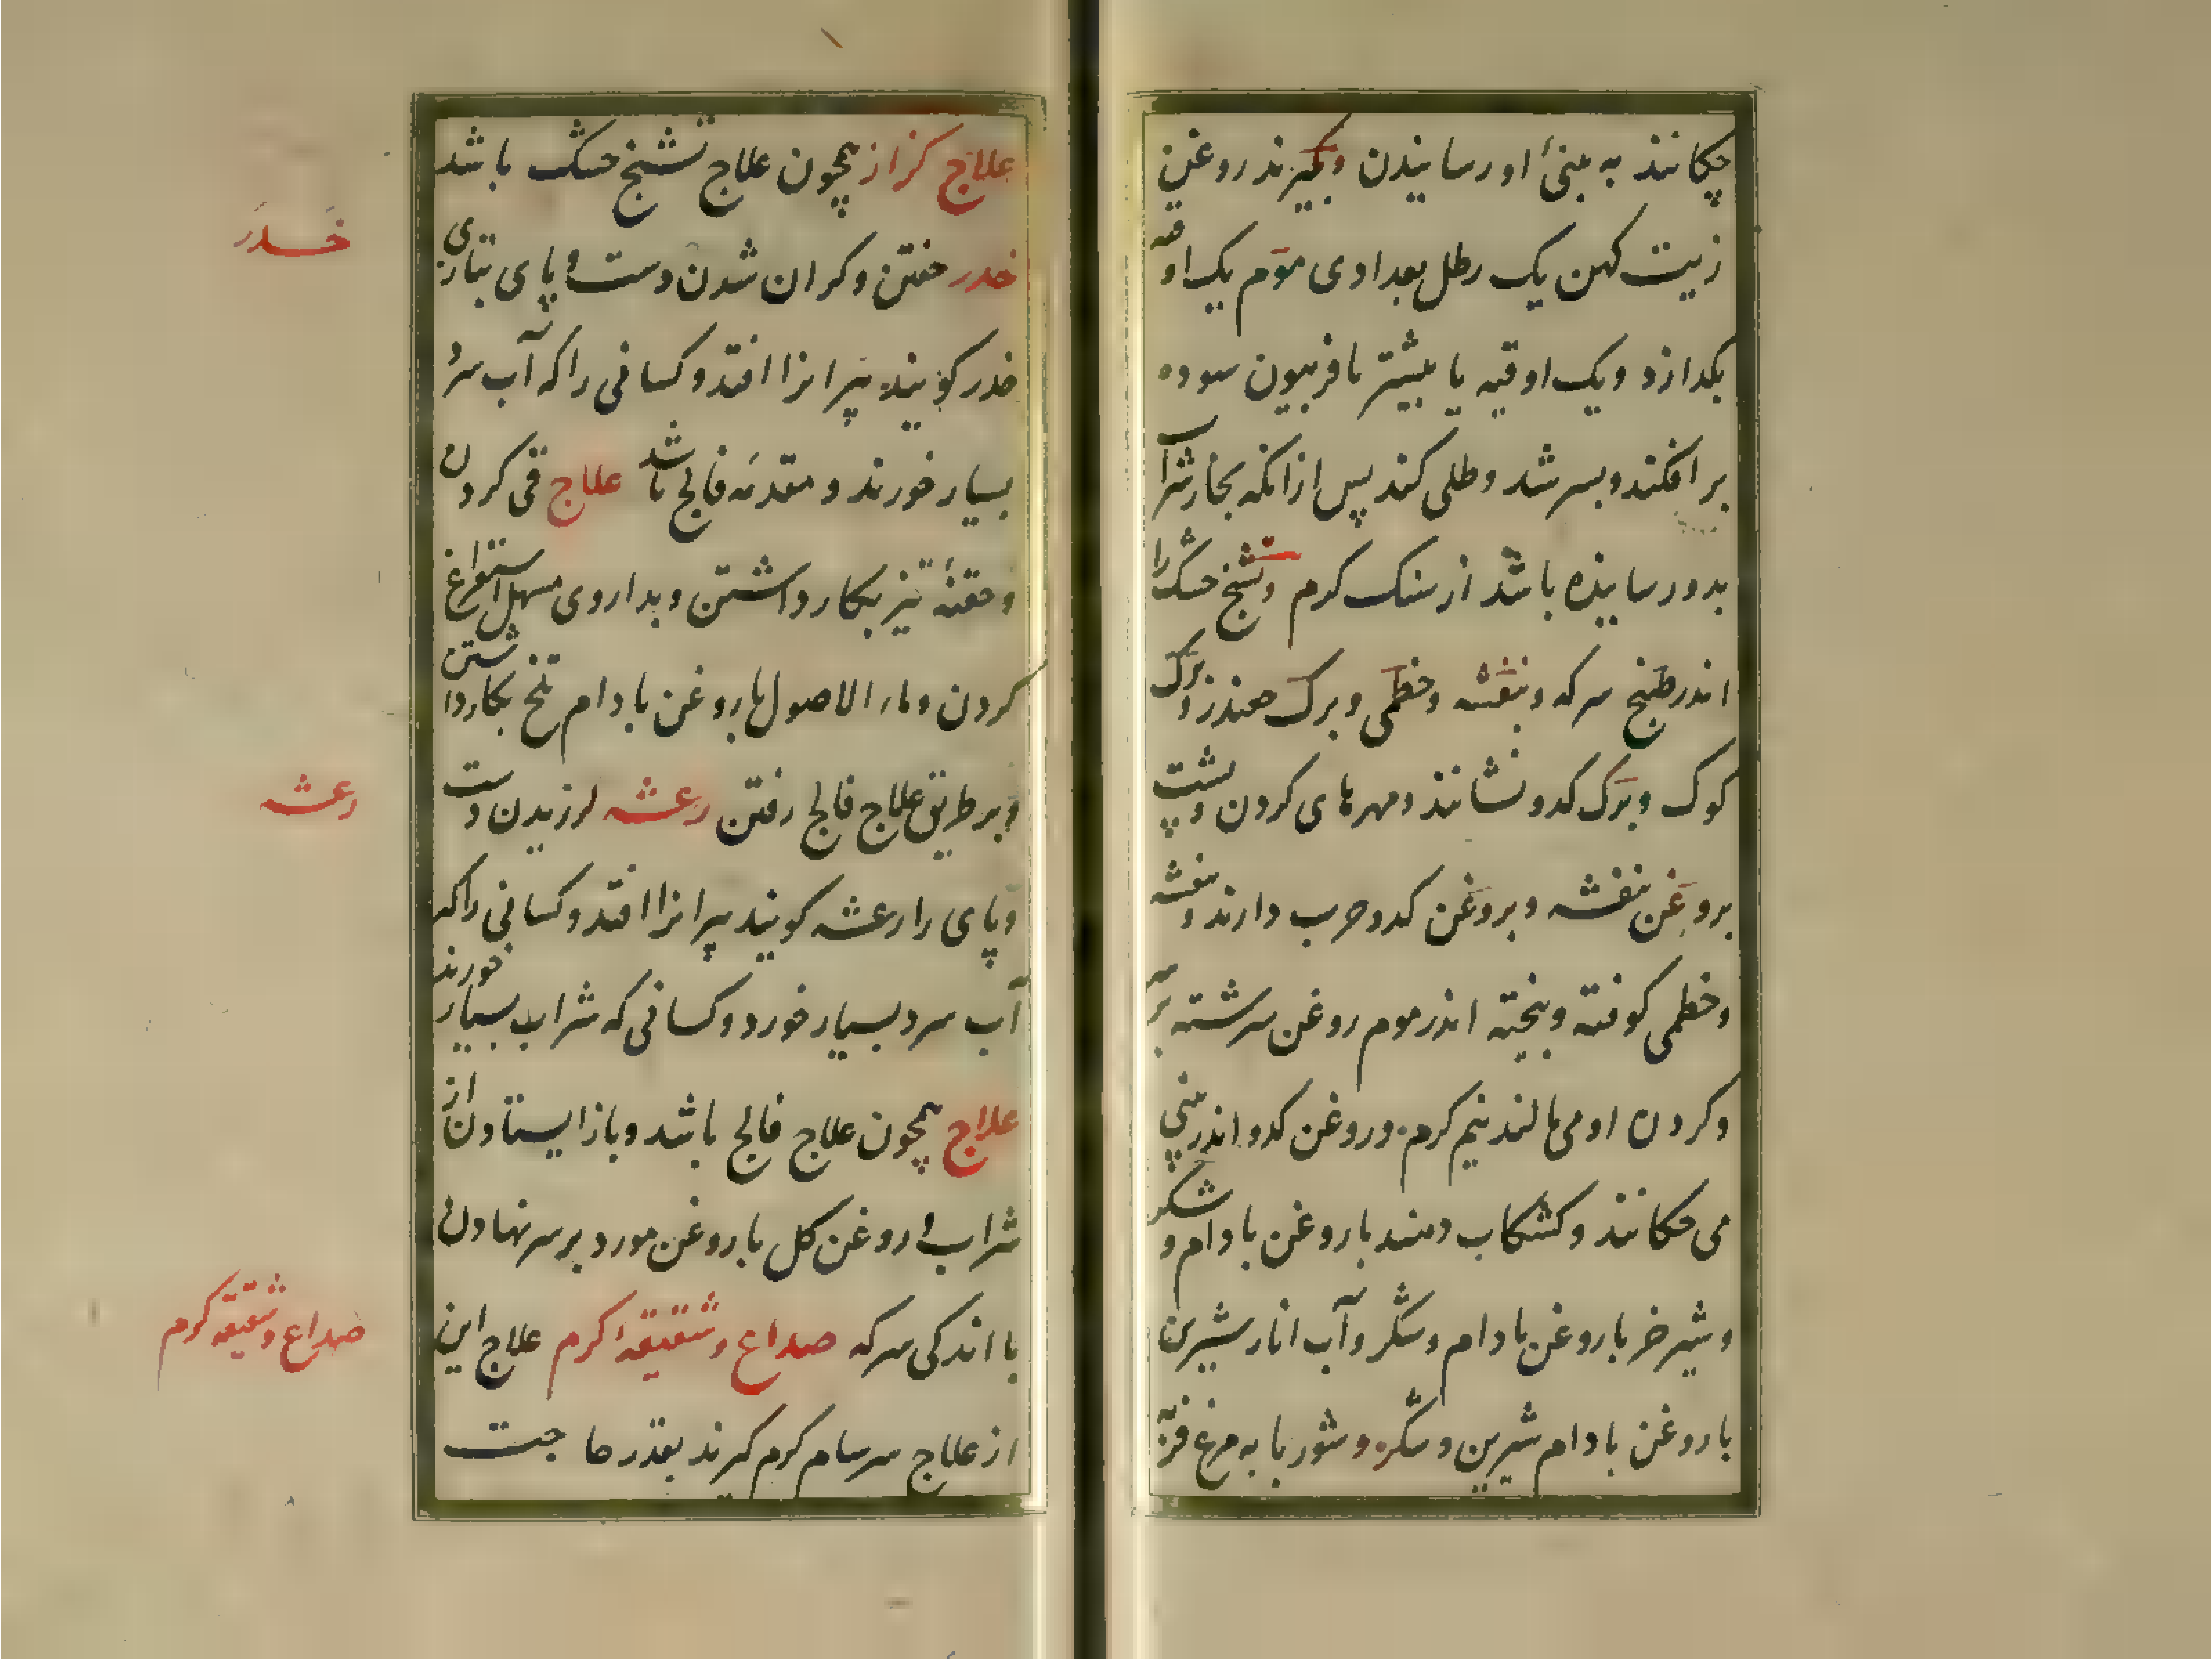 چکانند به بینئ او رسانیدن و بگیرند روغن
زیت کهن یک رطل بغدادی موم یک اوقیه
بکدازد و یک اوقیه یا بیشتر مافربیون سوده
بر افکند و بسرشد و طلی کند پس ازانکه بخار شراب
بدو رسانیده باشد از سنک کرم و تشنج خشک را
اندر طبیخ سرکه و بنفشه و خطمی و برک چغندر و برک
کوک و برک کدو نشانند و مهرهای کردن و پشت
بروغن بنفشه و بروغن کدو چرب دارند و بنفشه
و خطمی کوفته و بیخته اندر موم روغن سرشته بر
و کردن او می مالند نیم کرم و روغن کدو اندر بینی
می چکانند و کشکاب دهند با روغن بادام و شکر
و شیر خر با روغن بادام و شکر و آب انار شیرین
با روغن بادام شیرین و شکر و شوربا به مرغ فربه
علاج کزاز همچون علاج تشنج خشک باشد
خدر خفتن و کران شدن دست و پای بتازی
خدر کویند پیرانرا افتد و کسانی را که آب سرد
بسیار خورند و مقدمه فالج باشد علاج قی کردن
و حقنهٔ تیز بکار داشتن و بداروی مسهل استفراغ
کردن و ماء الاصول با روغن بادام تلخ بکار داشتن
و بر طریق علاج فالج رفتن رعشه لرزیدن دست
و پای را رعشه کویند پیرانرا افتد و کسانی را که
آب سرد بسیار خورد و کسانی که شراب بسیار خورند
علاج همچون علاج فالج باشد و باز ایستادن از
شراب و روغن کل با روغن مورد بر سر نهادن
با اندکی سرکه صداع و شقیقه کرم علاج این
از علاج سرسام کرم کیرند بقدر حاجت
خَدَر
رعشه
صداع و شقیقه کرم